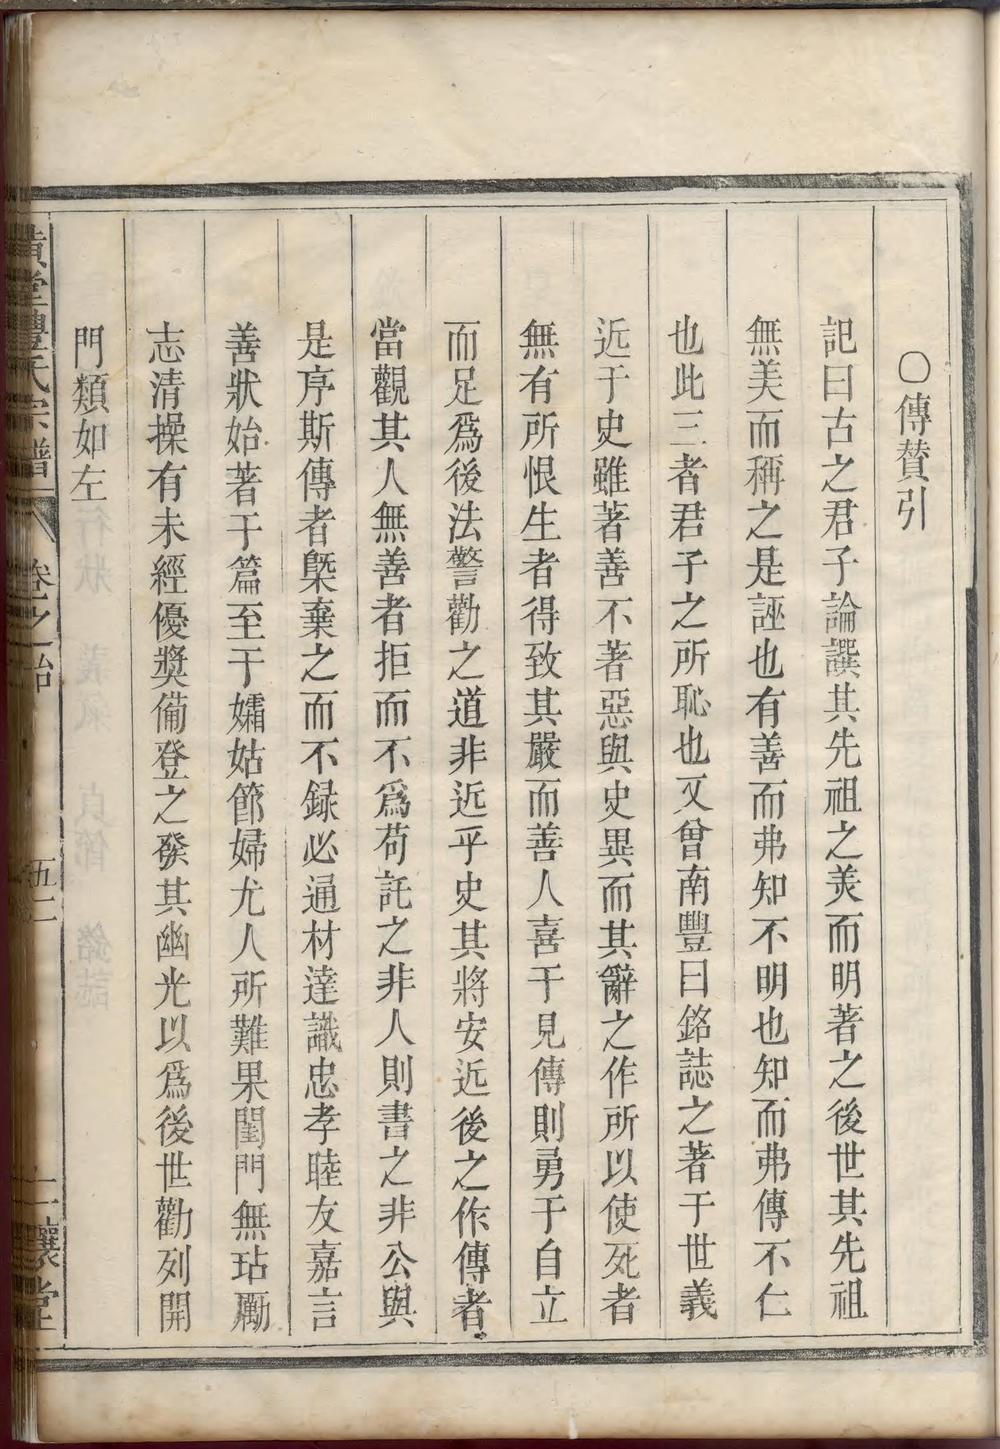 ○傳賛引
記曰古之君子論譔其先祖之美而明著之後世其先祖
無美而稱之是誣也有善而弗知不明也知而弗傳不仁
也此三者君子之所恥也又曾南豐曰銘誌之著于世義
近于史雖著善不著惡與史異而其辭之作所以使死者
無有所恨生者得致其嚴而善人喜于見傳則勇于自立
而足爲後法警勸之道非近乎史其將安近後之作傳者
當觀其人無善者拒而不爲苟託之非人則書之非公與
是序斯傳者槩棄之而不録必通材達識忠孝睦友嘉言
善狀始著于篇至于孀姑節婦尤人所難果閨門無玷勵
志清操有未經優獎備登之發其幽光以爲後世勸列開
門類如左
黄堂豐氏宗譜
卷之
五二